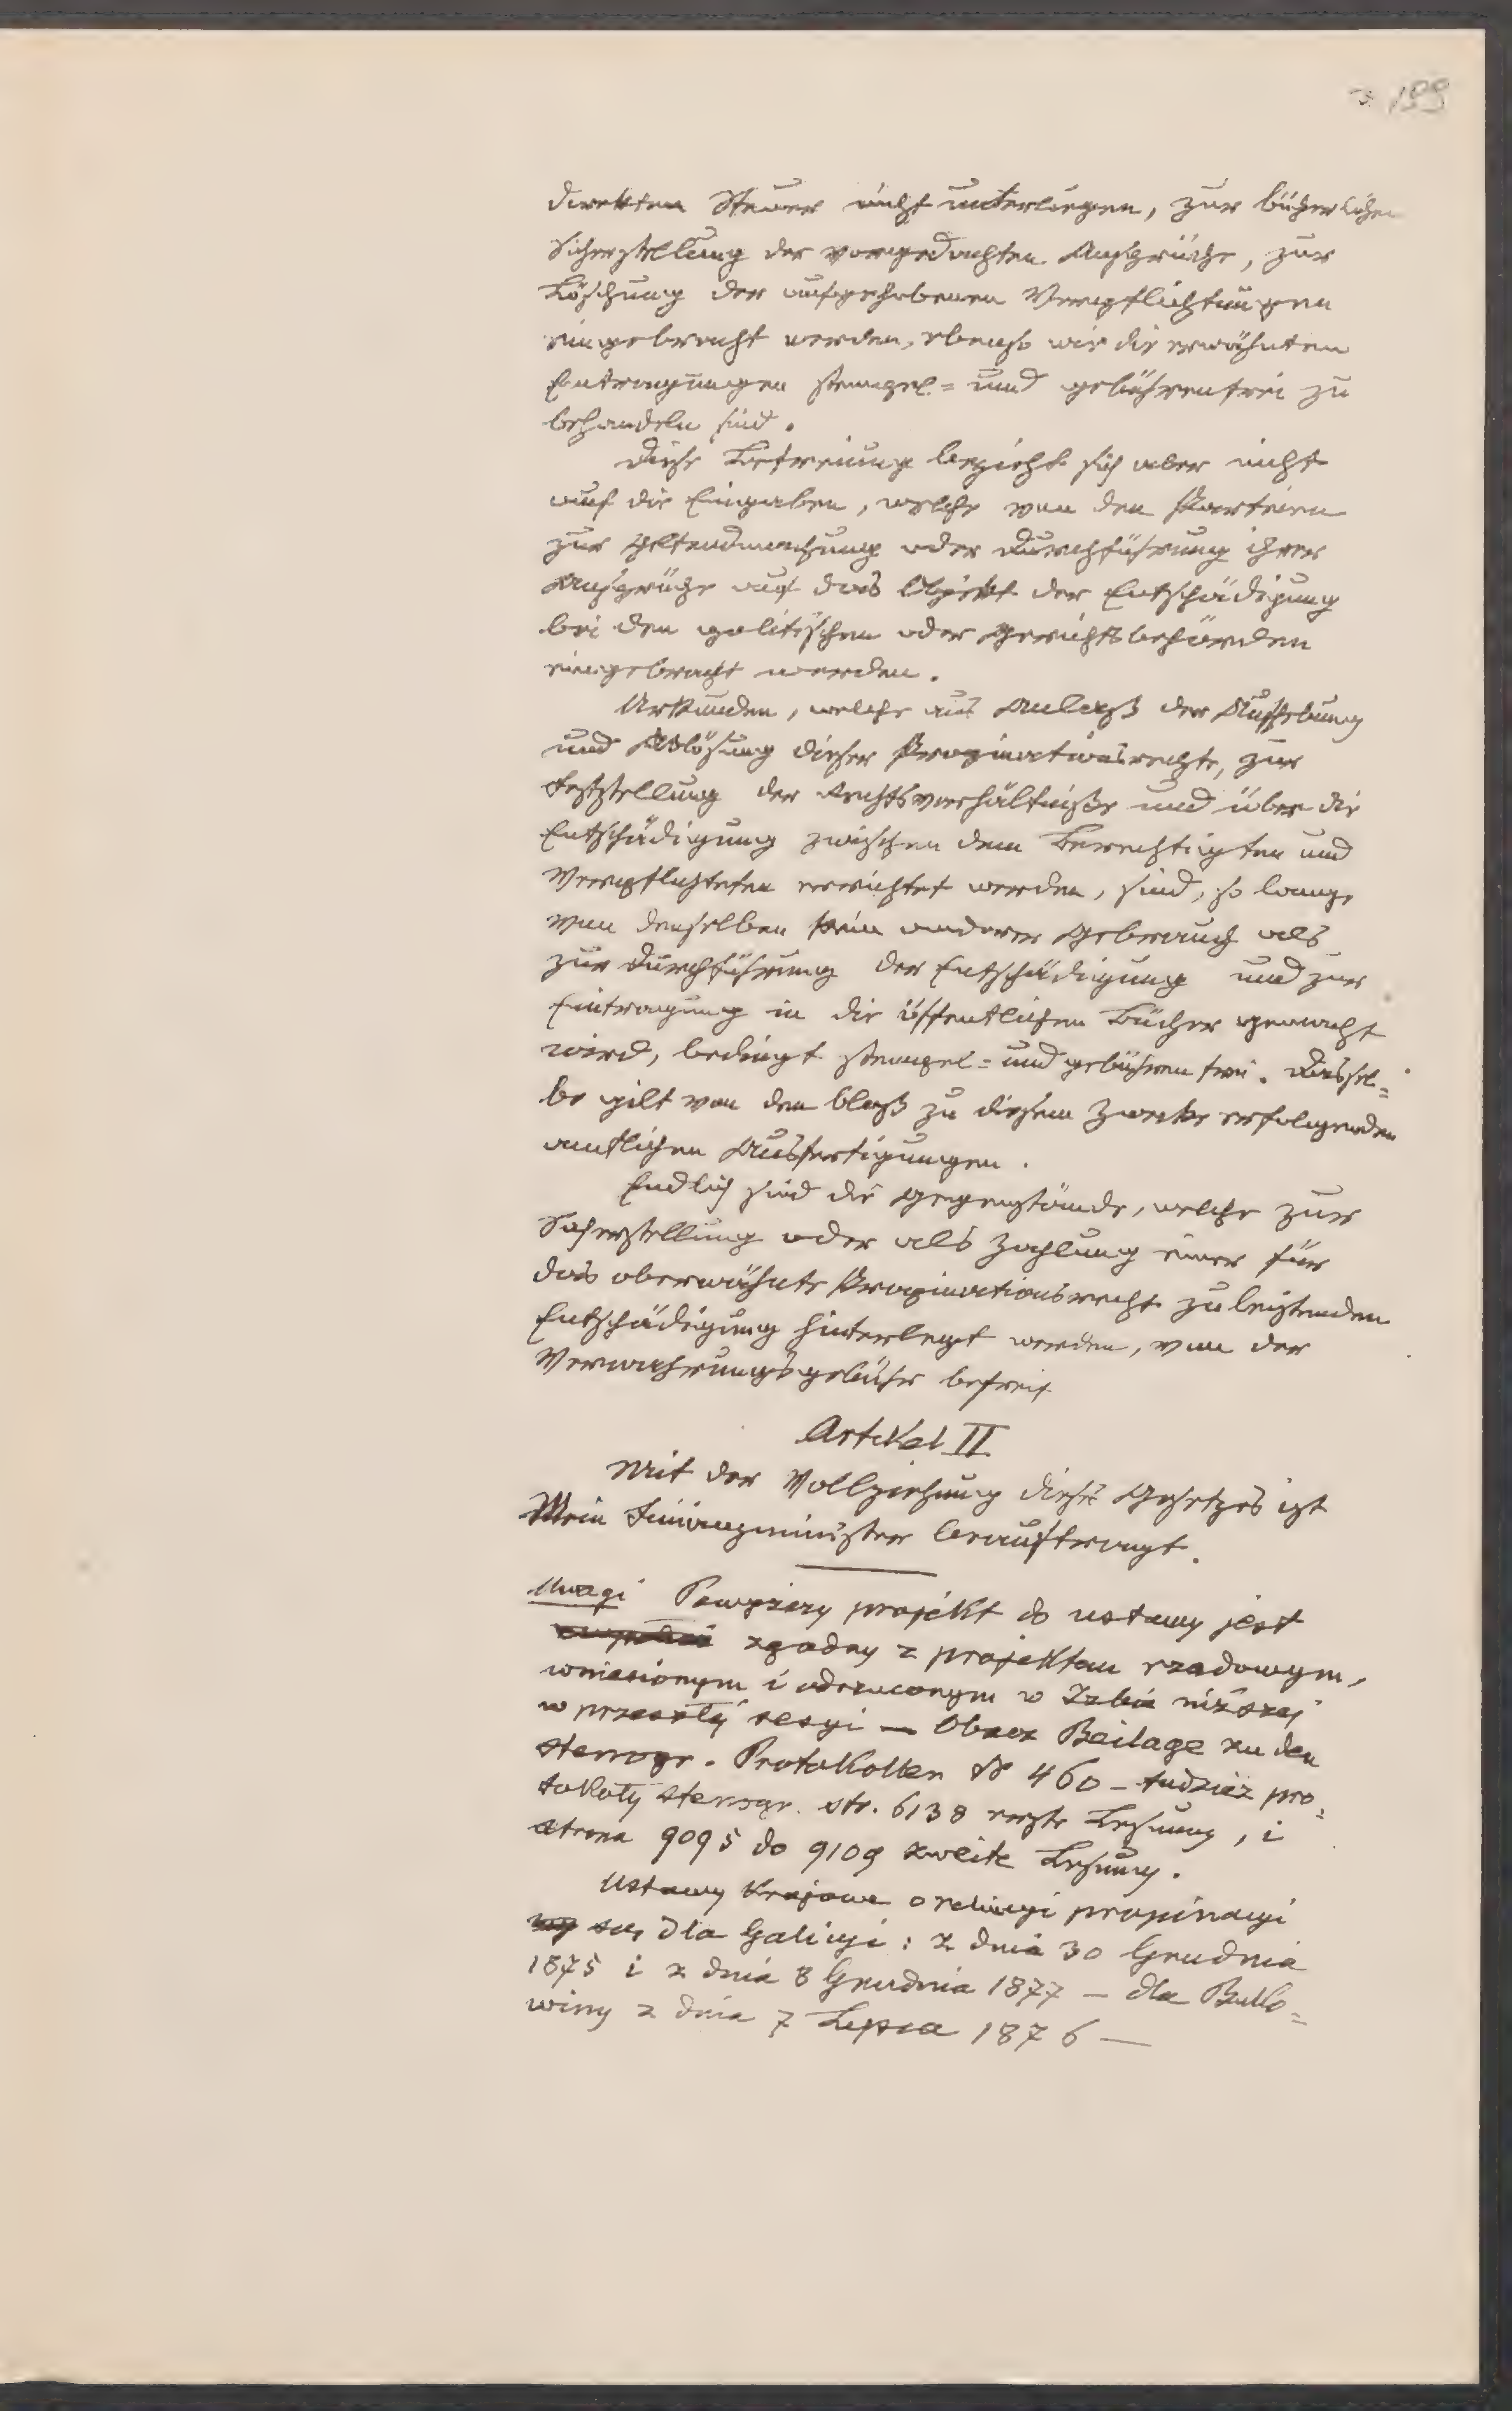 199
direkten Steuer nicht unterliegen, zur bücherlichen
Sicherstellung der vorgedachten Ansprüche, zur
Löschung der aufgehobenen Verpflichtungen
eingebracht werden, ebenso wie die erwähnten
Eintragungen stempel= und gebührenfrei zu
behandeln sind.
Diese Befreiung bezieht sich aber nicht
auf die Eingaben, welche von den Parteien
zur Geltendmachung oder Durchführung ihrer
Ansprüche auf das Objekt der Entschädigung
bei den politischen oder Gerichtsbehörden
eingebracht werden.
Urkunden, welche aus Anlaß der Aufhebung
und Ablösung dieser Propinationsrechte, zur
Feststellung der Rechtsverhältniße und über die
Entschädigung zwischen dem Berechtigten und
Verpflichteten errichtet werden, sind, so lange
von denselben kein anderer Gebrauch als
zur Durchführung der Entschädigung und zur
Eintragung in die öffentlichen Bücher gemacht
wird, bedingt stempel= und gebührenfrei. Dassel=
be gilt von den bloß zu diesem Zwecke erfolgenden
amtlichen Ausfertigungen.
Endlich sind die Gegenstände, welche zur
Sicherstellung oder als Zahlung einer für
das oberwähnte Propinationsrecht zu leistenden
Entschädigung hinterlegt werden, von der
Verwahrungsgebühr befreit
Artikel II
Mit der Vollziehung dieses Gesetzes ist
Mein Finanzminister beauftragt.
Uwagi Powyższy projekt do ustawy jest
zgodny z projektem rządowym,
wniesionym i odrzuconym w Izbie niższej
w przeszłej sesyi — Obacz Beilage zu den
stenogr. Protokollen № 460 – tudzież pro=
tokoły stenogr. str. 6138 erste Lesung, i
strona 9095 do 9109 zweite Lesung.
Ustawy krajowe o propinacyi
są dla Galicyi: z dnia 30 Grudnia
1875 i z dnia 8 Grudnia 1877 — dla Buko=
winy z dnia 7 Lipca 1876 —